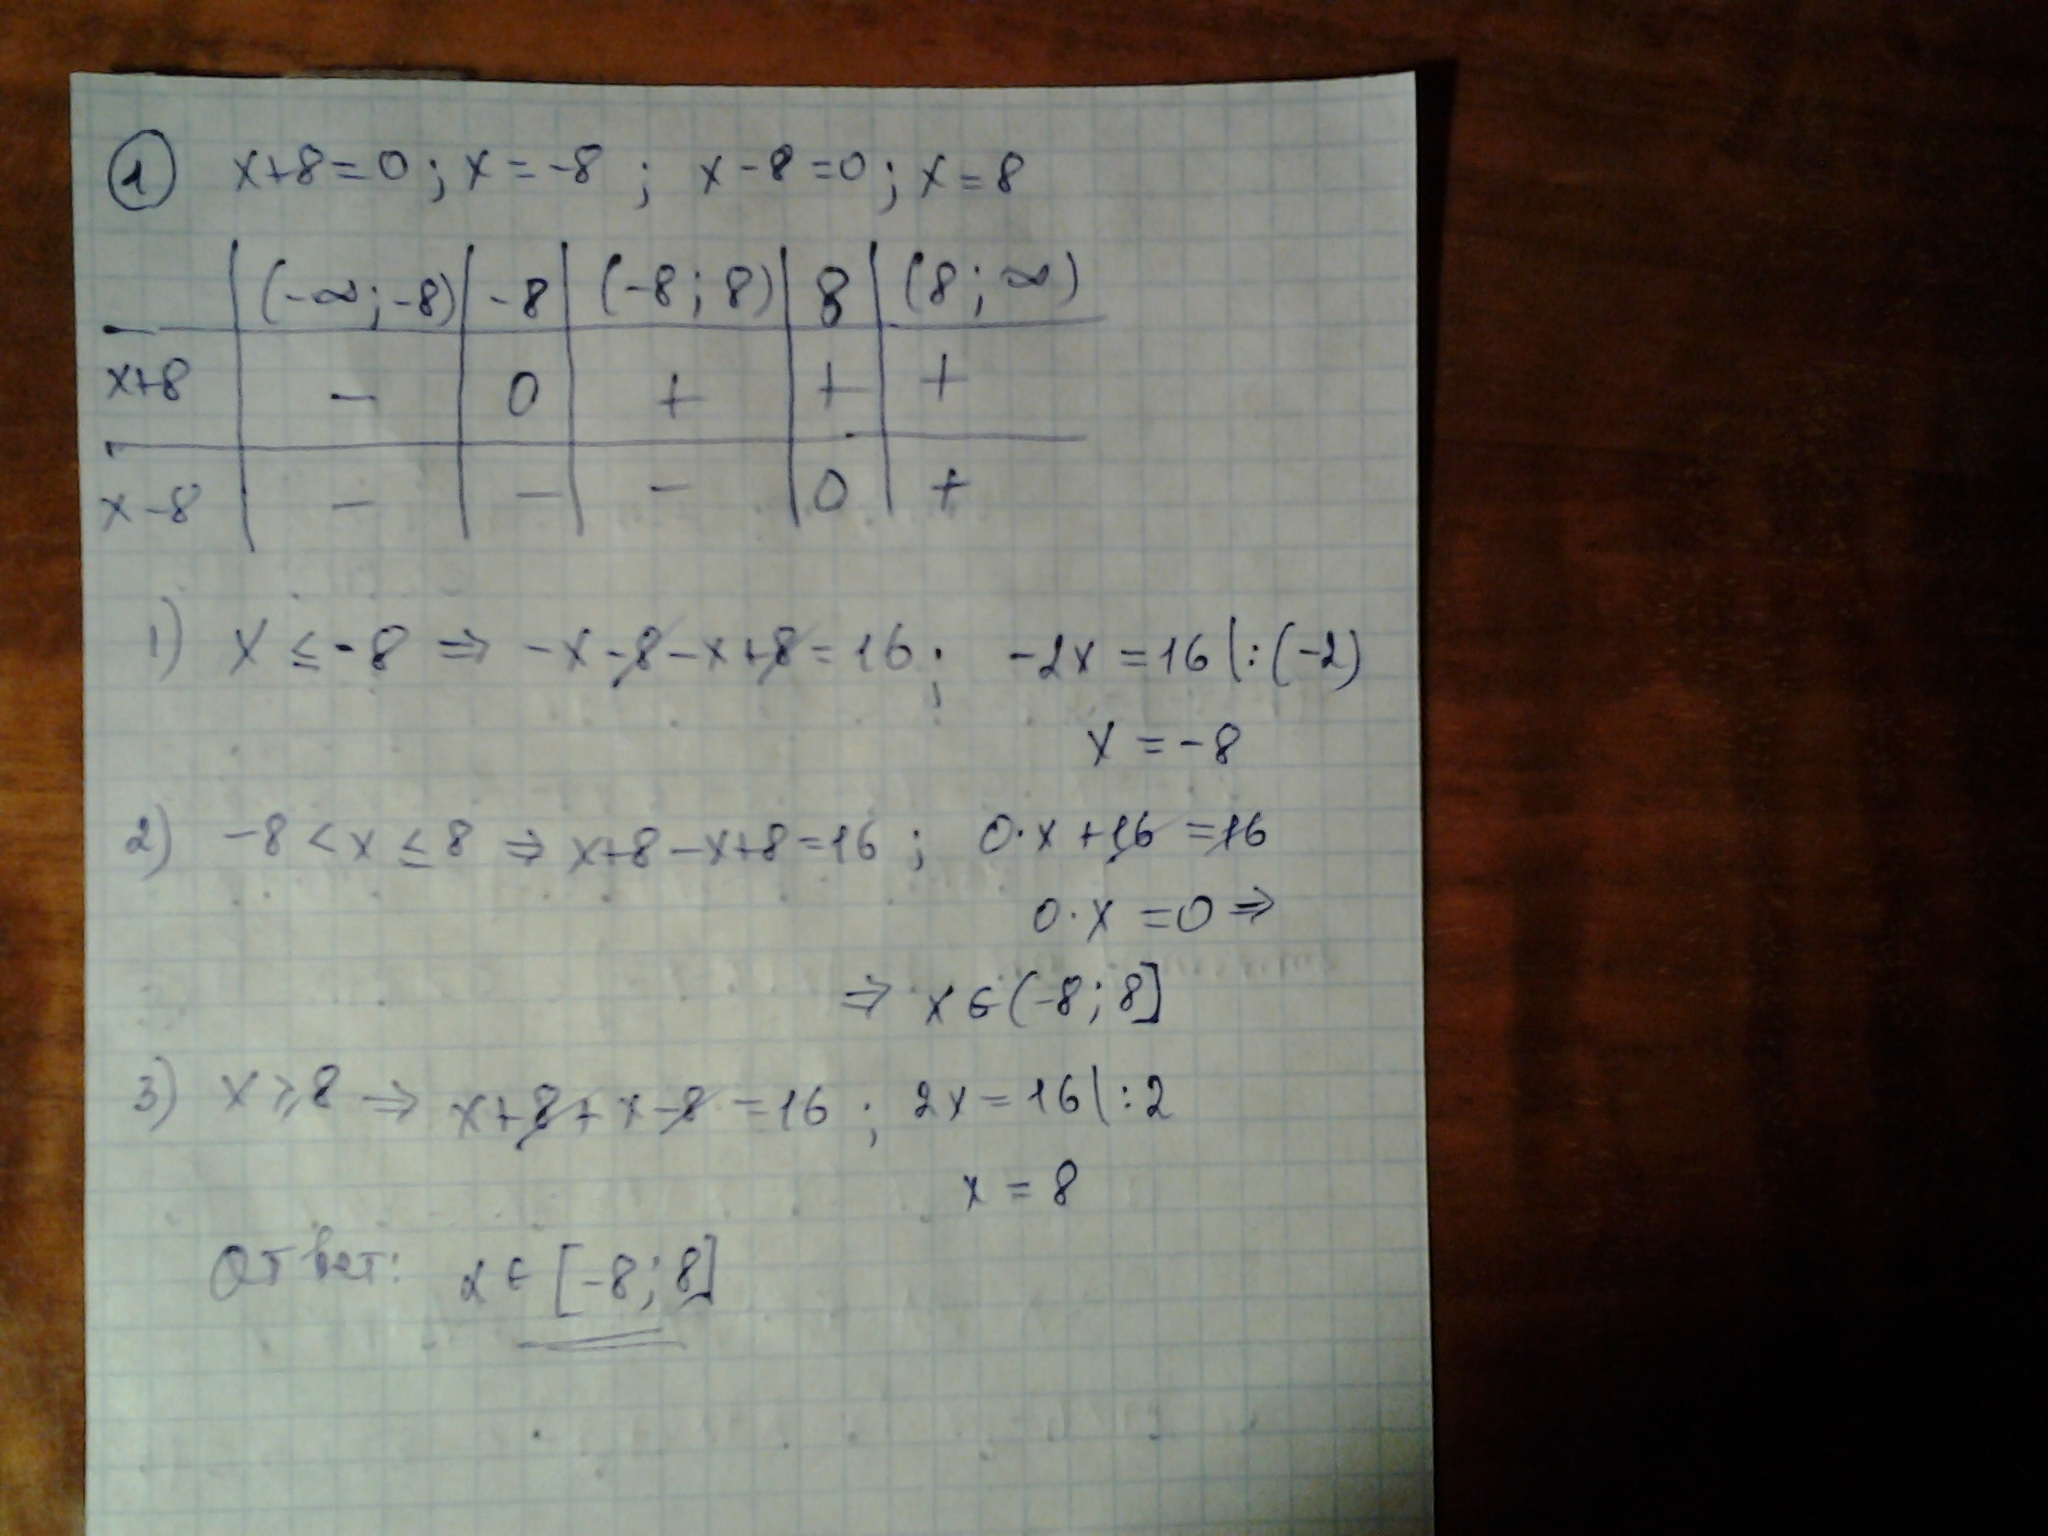 ① x+8=0; x=-8; x-8=0; x=8
(-∞;-8) | -8 | (-8;8) | 8 | (8;∞)
x+8 | - | 0 | + | + | +
x-8 | - | - | - | 0 | +
1) x≤-8 ⇒ -x-8-x+8=16; -2x=16|:(-2)
x=-8
2) -8<x≤8 ⇒ x+8-x+8=16; 0·x+16=16
0·x=0 ⇒
⇒ x∈(-8;8]
3) x≥8 ⇒ x+8+x-8=16; 2x=16|:2
x=8
Ответ: x∈[-8;8]